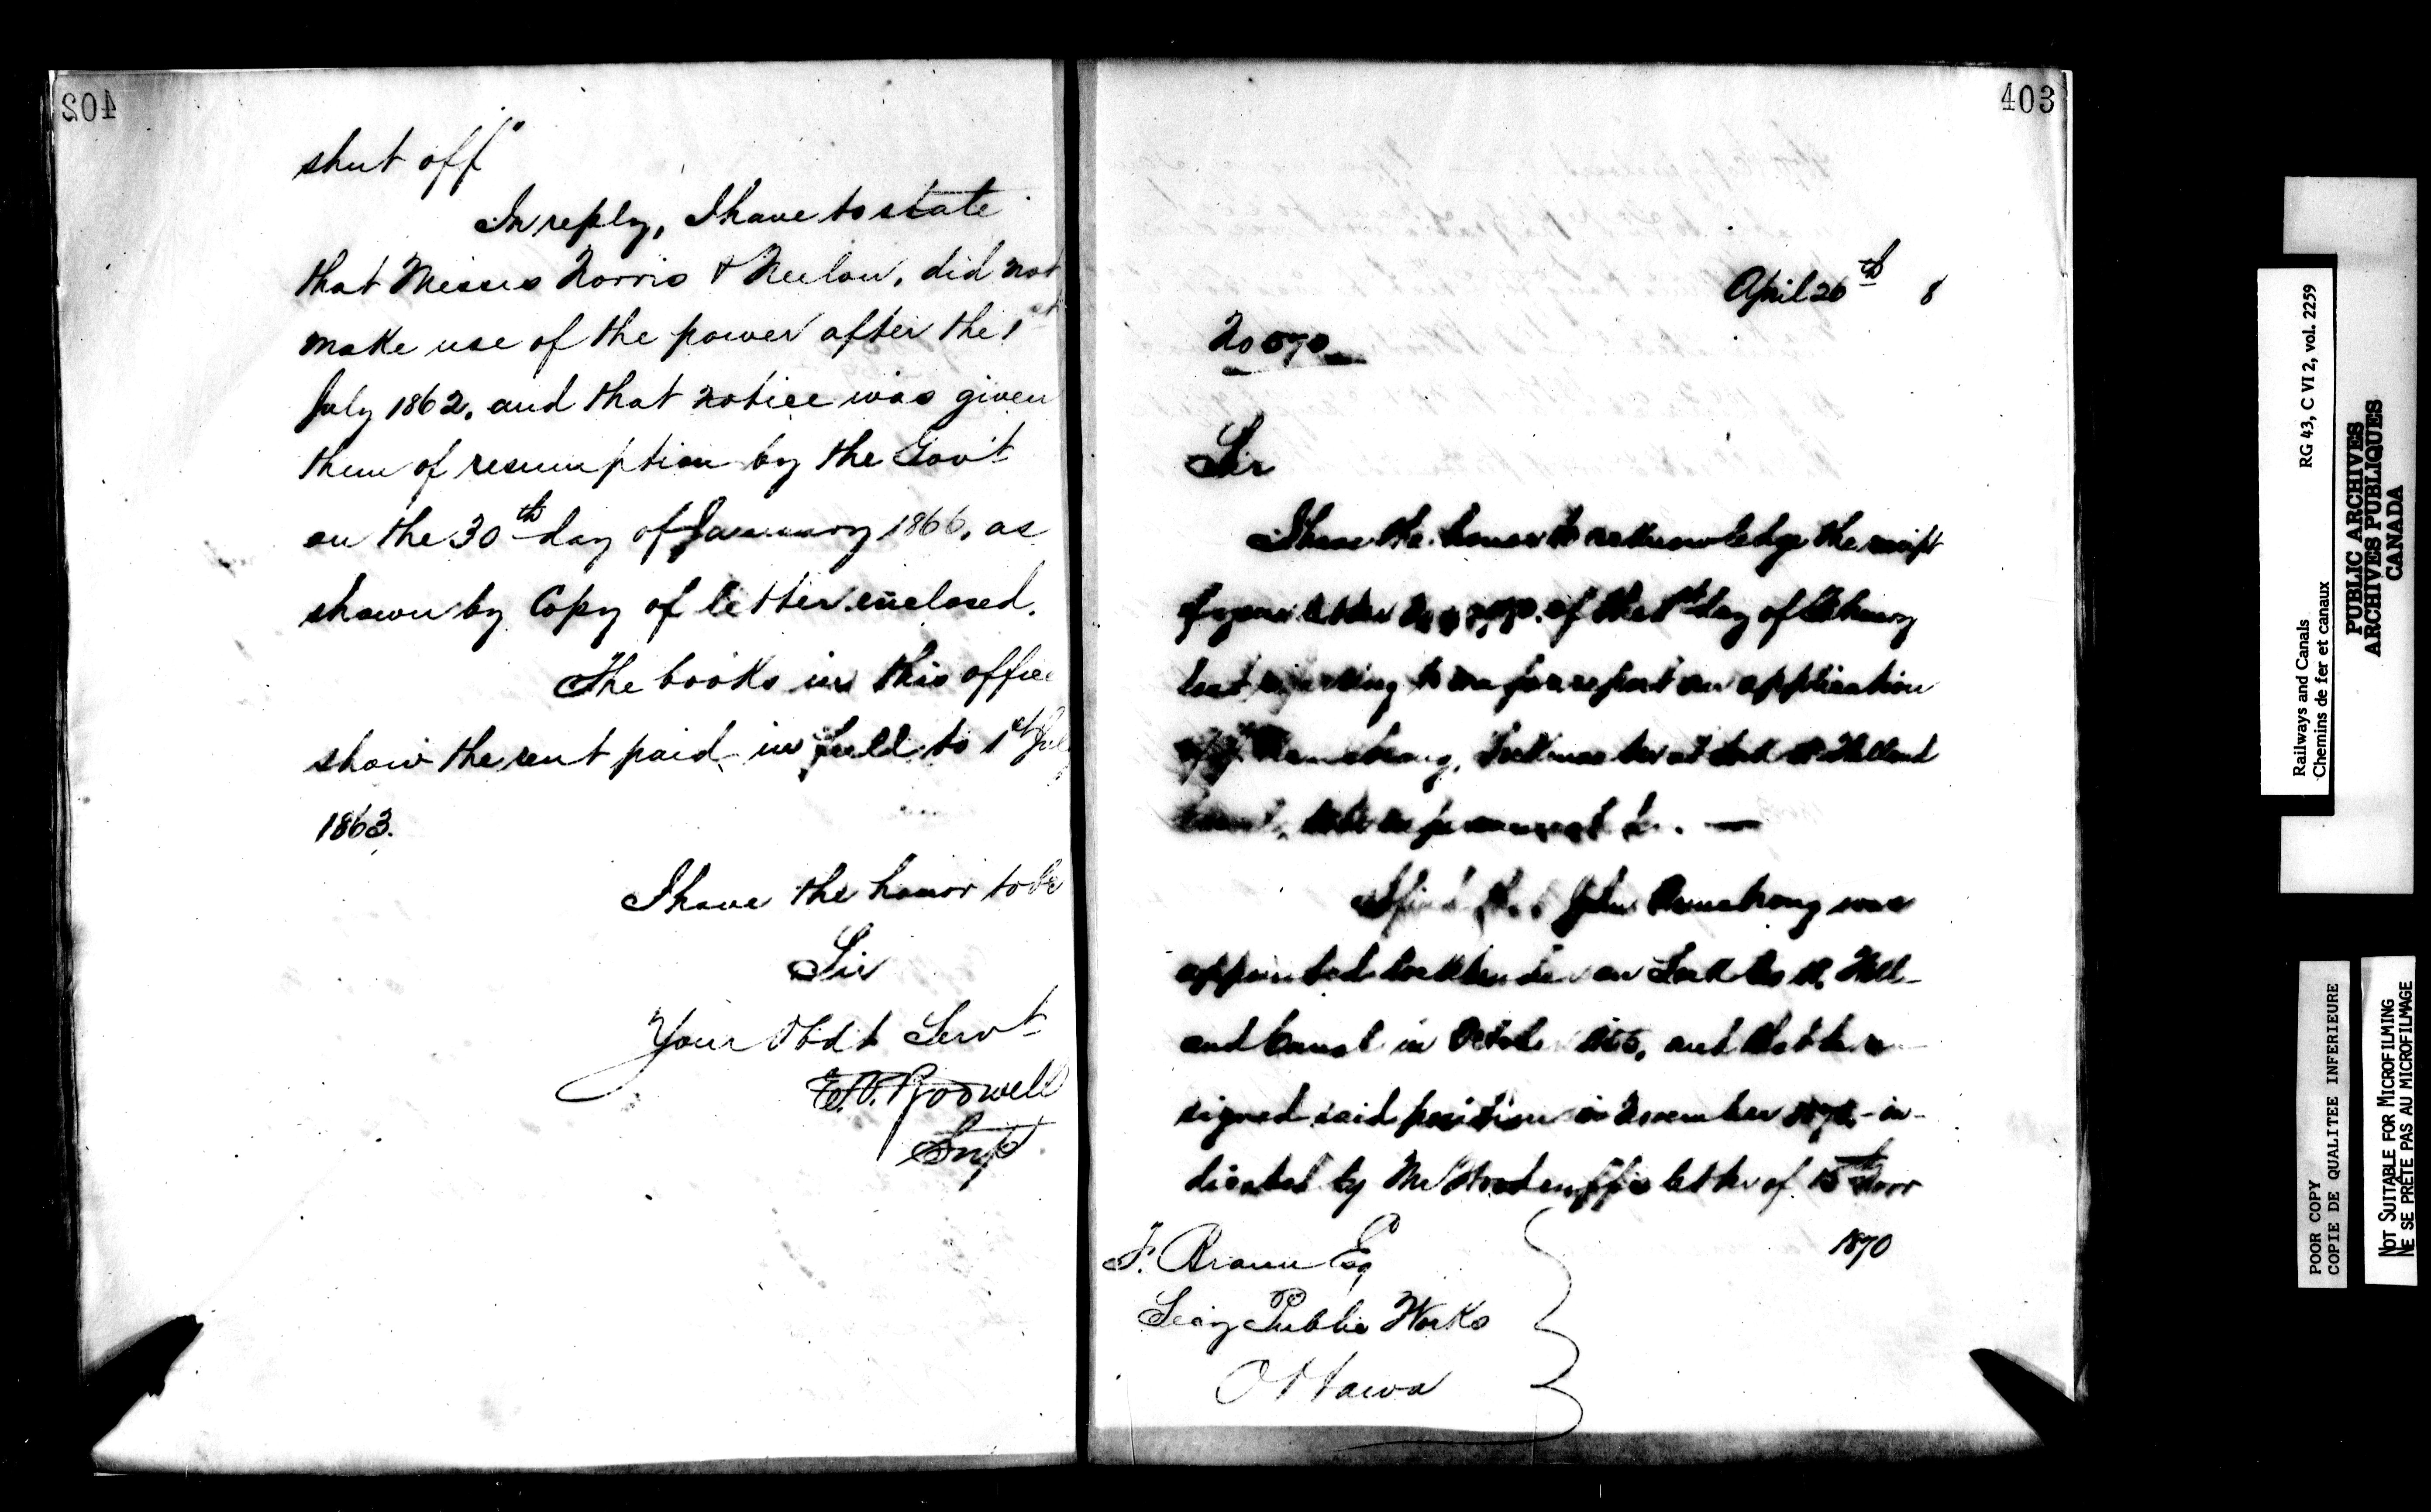 402
shut off"
In reply, I have to state
that Messrs Norris & Neelon, did not
make use of the power after the 1st
July 1862, and that notice was given
them of resumption by the Gov't
on the 30th day of January 1866, as
shown by Copy of letter enclosed.
The books in this office
show the rent paid in full to 1st July
1863.
I have the honor to be
Sir
Your Obdt Servt
Supt
403
April 26th 8
No 570
Sir
I have the honor to acknowledge the receipt
of your letter of the 1st day of February
last referring to me for report an application
Armstrong, Locktender at Lock Welland
Canal,
I find that John Armstrong was
appointed locktender on Lock No Well-
and Canal in October and that he re-
signed said position in November in-
dicated by Mr letter of 15th Novr
1870
F. Braun Esq
Secy Public Works
Ottawa
Railways and Canals RG 43, C VI 2, vol. 2259
Chemins de fer et canaux
PUBLIC ARCHIVES
ARCHIVES PUBLIQUES
CANADA
POOR COPY
COPIE DE QUALITEE INFERIEURE
NOT SUITABLE FOR MICROFILMING
NE SE PRÊTE PAS AU MICROFILMAGE